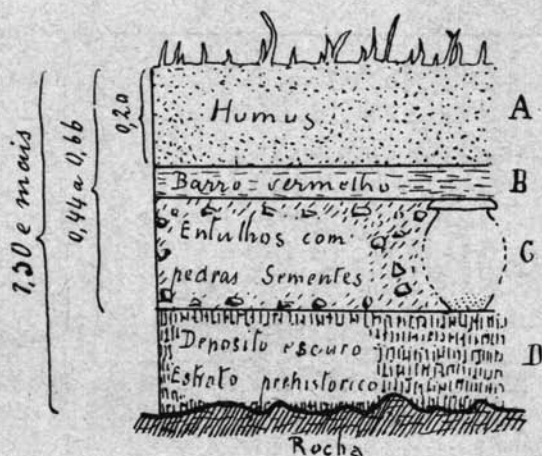 Humus
A
0,20
0,44 a 0,66
1,30 e mais
Barro vermelho
B
Entulhos com
pedras Sementes
C
Deposito escuro
Estrato prehistorico
D
Rocha